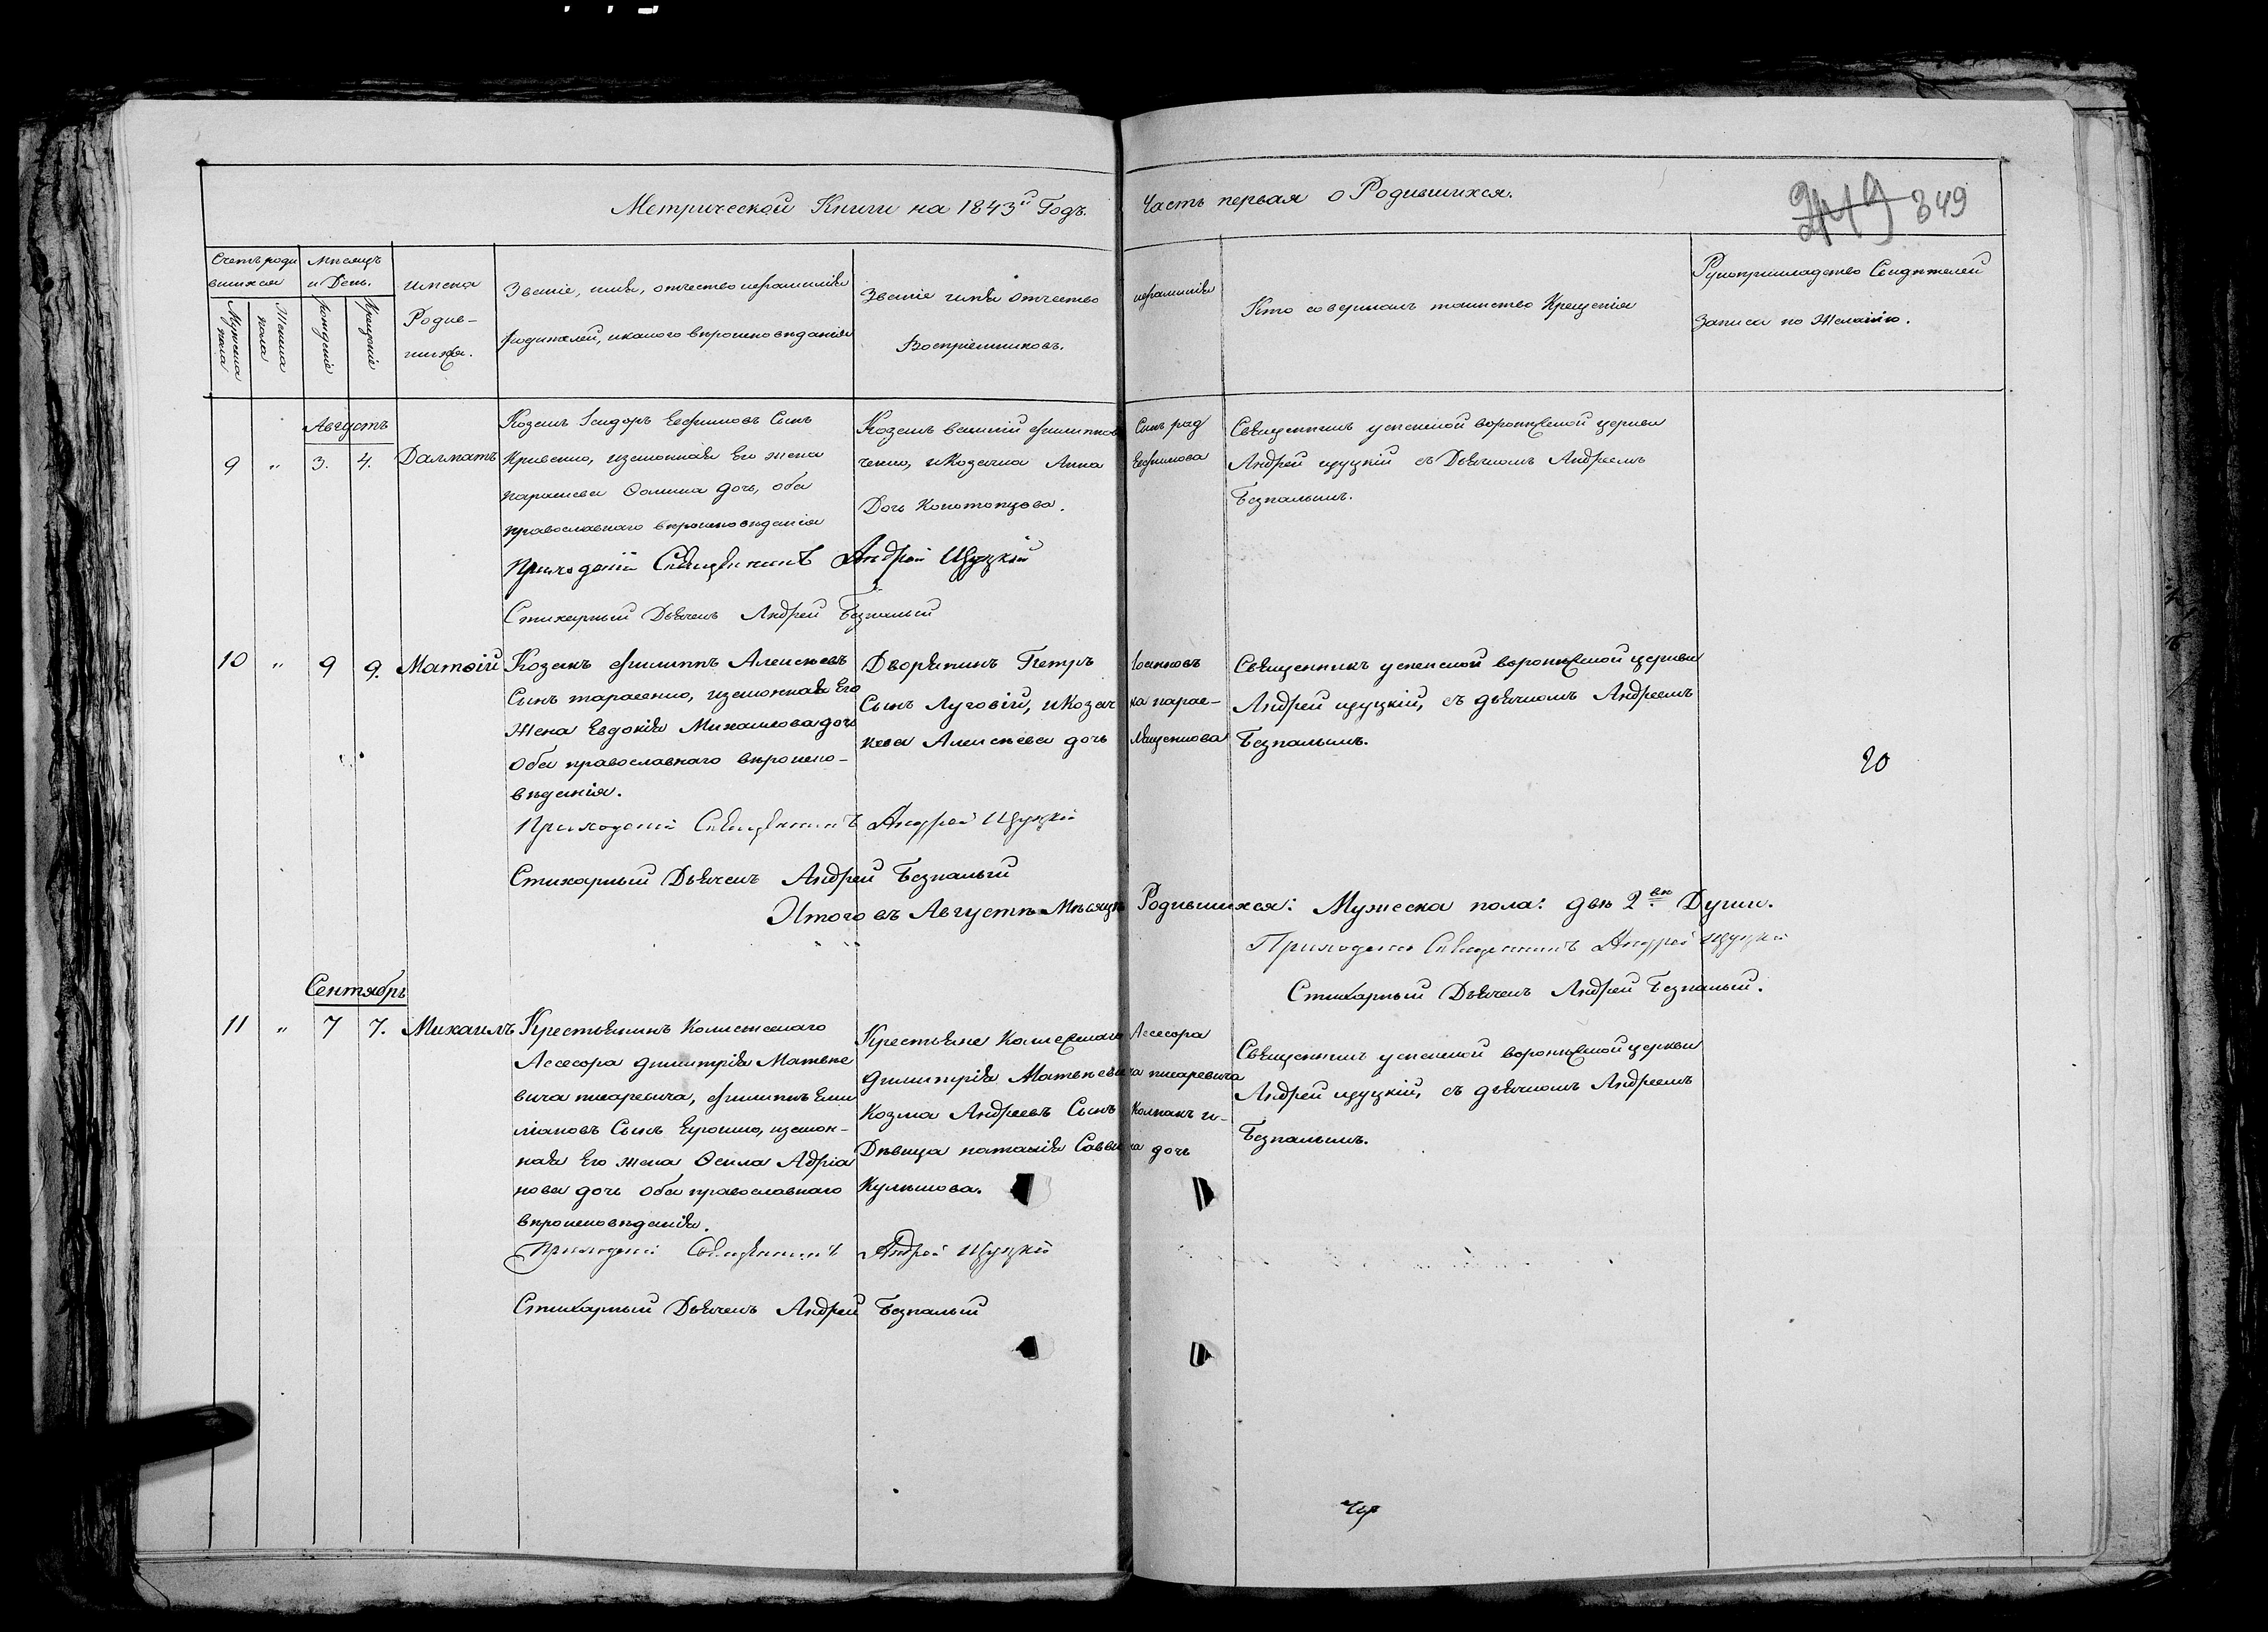 Метрической Книги на 1843й Годъ. Часть первая о Родившихся.
349 349
Счетъ роди
вшихся
Мужеска пола
Женска пола
Мѣсяцъ
и День.
рожденіе
Крещеніе
имена
Родив-
шихся.
Званіе, имя, отчество ифамилія
родителей, икакого вѣроисповѣданія
Званіе имя отчество ифамилія
Воспріемниковъ.
Кто совершалъ таинство Крещенія
Рукоприкладство Свидѣтелей
Записи по Желанію.
Августъ
9 „ 3. 4. Далматъ
Козакъ Ісидоръ Евфимовъ Сынъ
Кривенко, изаконная Его жена
параскева Ѳомина дочь, оба
православнаго вѣроисповѣданія
Козакъ василій филиппов Сынъ рад
ченко, иКозачка Анна Евфимова
Дочь Конотопцова.
Священникъ успенской воронѣжской церкви
Андрей щуцкій съ Дьячкомъ Андреемъ
Безпалымъ.
Приходскій Священникъ Андрей Щуцкій
Стихарный Дьячекъ Андрей Безпалый
10 „ 9 9. Матѳій
Козакъ филиппъ Алексѣевъ
Сынъ тарасенко, изаконная Его
Жена Евдокія Михаилова дочь
Оба православнаго вѣроиспо-
вѣданія.
Дворянинъ Петръ Іоанновъ
Сынъ Луговій, иКозачка парас-
кева Алексѣева дочь Мищенкова
Священникъ успенской воронѣжской церкви
Андрей щуцкій, съ дьячкомъ Андреемъ
Безпалымъ.
20
Приходскій Священникъ Андрей Щуцкій
Стихарный Дьячекъ Андрей Безпалый
Итого въ Августѣ Мѣсяцѣ Родившихся: Мужеска пола: двѣ 2вѣ Души.
Приходскій Священникъ Андрей Щуцкій
Стихарный Дьячекъ Андрей Безпалый.
Сентябрь
11 „ 7 7. Михаилъ
Крестьянинъ Колежскаго
Ассесора димитрія Матвѣе
вича писаревича, филиппъ Еми
ліановъ Сынъ Ерошко, изакон-
ная Его жена Ѳекла Адріа
нова дочь Оба православнаго
вѣроисповѣданія.
Крестьяне Колежскаго Ассесора
димитрія Матвѣевича писаревича
Козма Андреевъ Сынъ Колпакъ и-
Дѣвица наталія Саввина дочь
Кулешова.
Священникъ успенской воронѣжской церкви
Андрей щуцкій, съ дьячкомъ Андреемъ
Безпалымъ.
Приходскій Священникъ Андрей Щуцкій
Стихарный Дьячекъ Андрей Безпалый